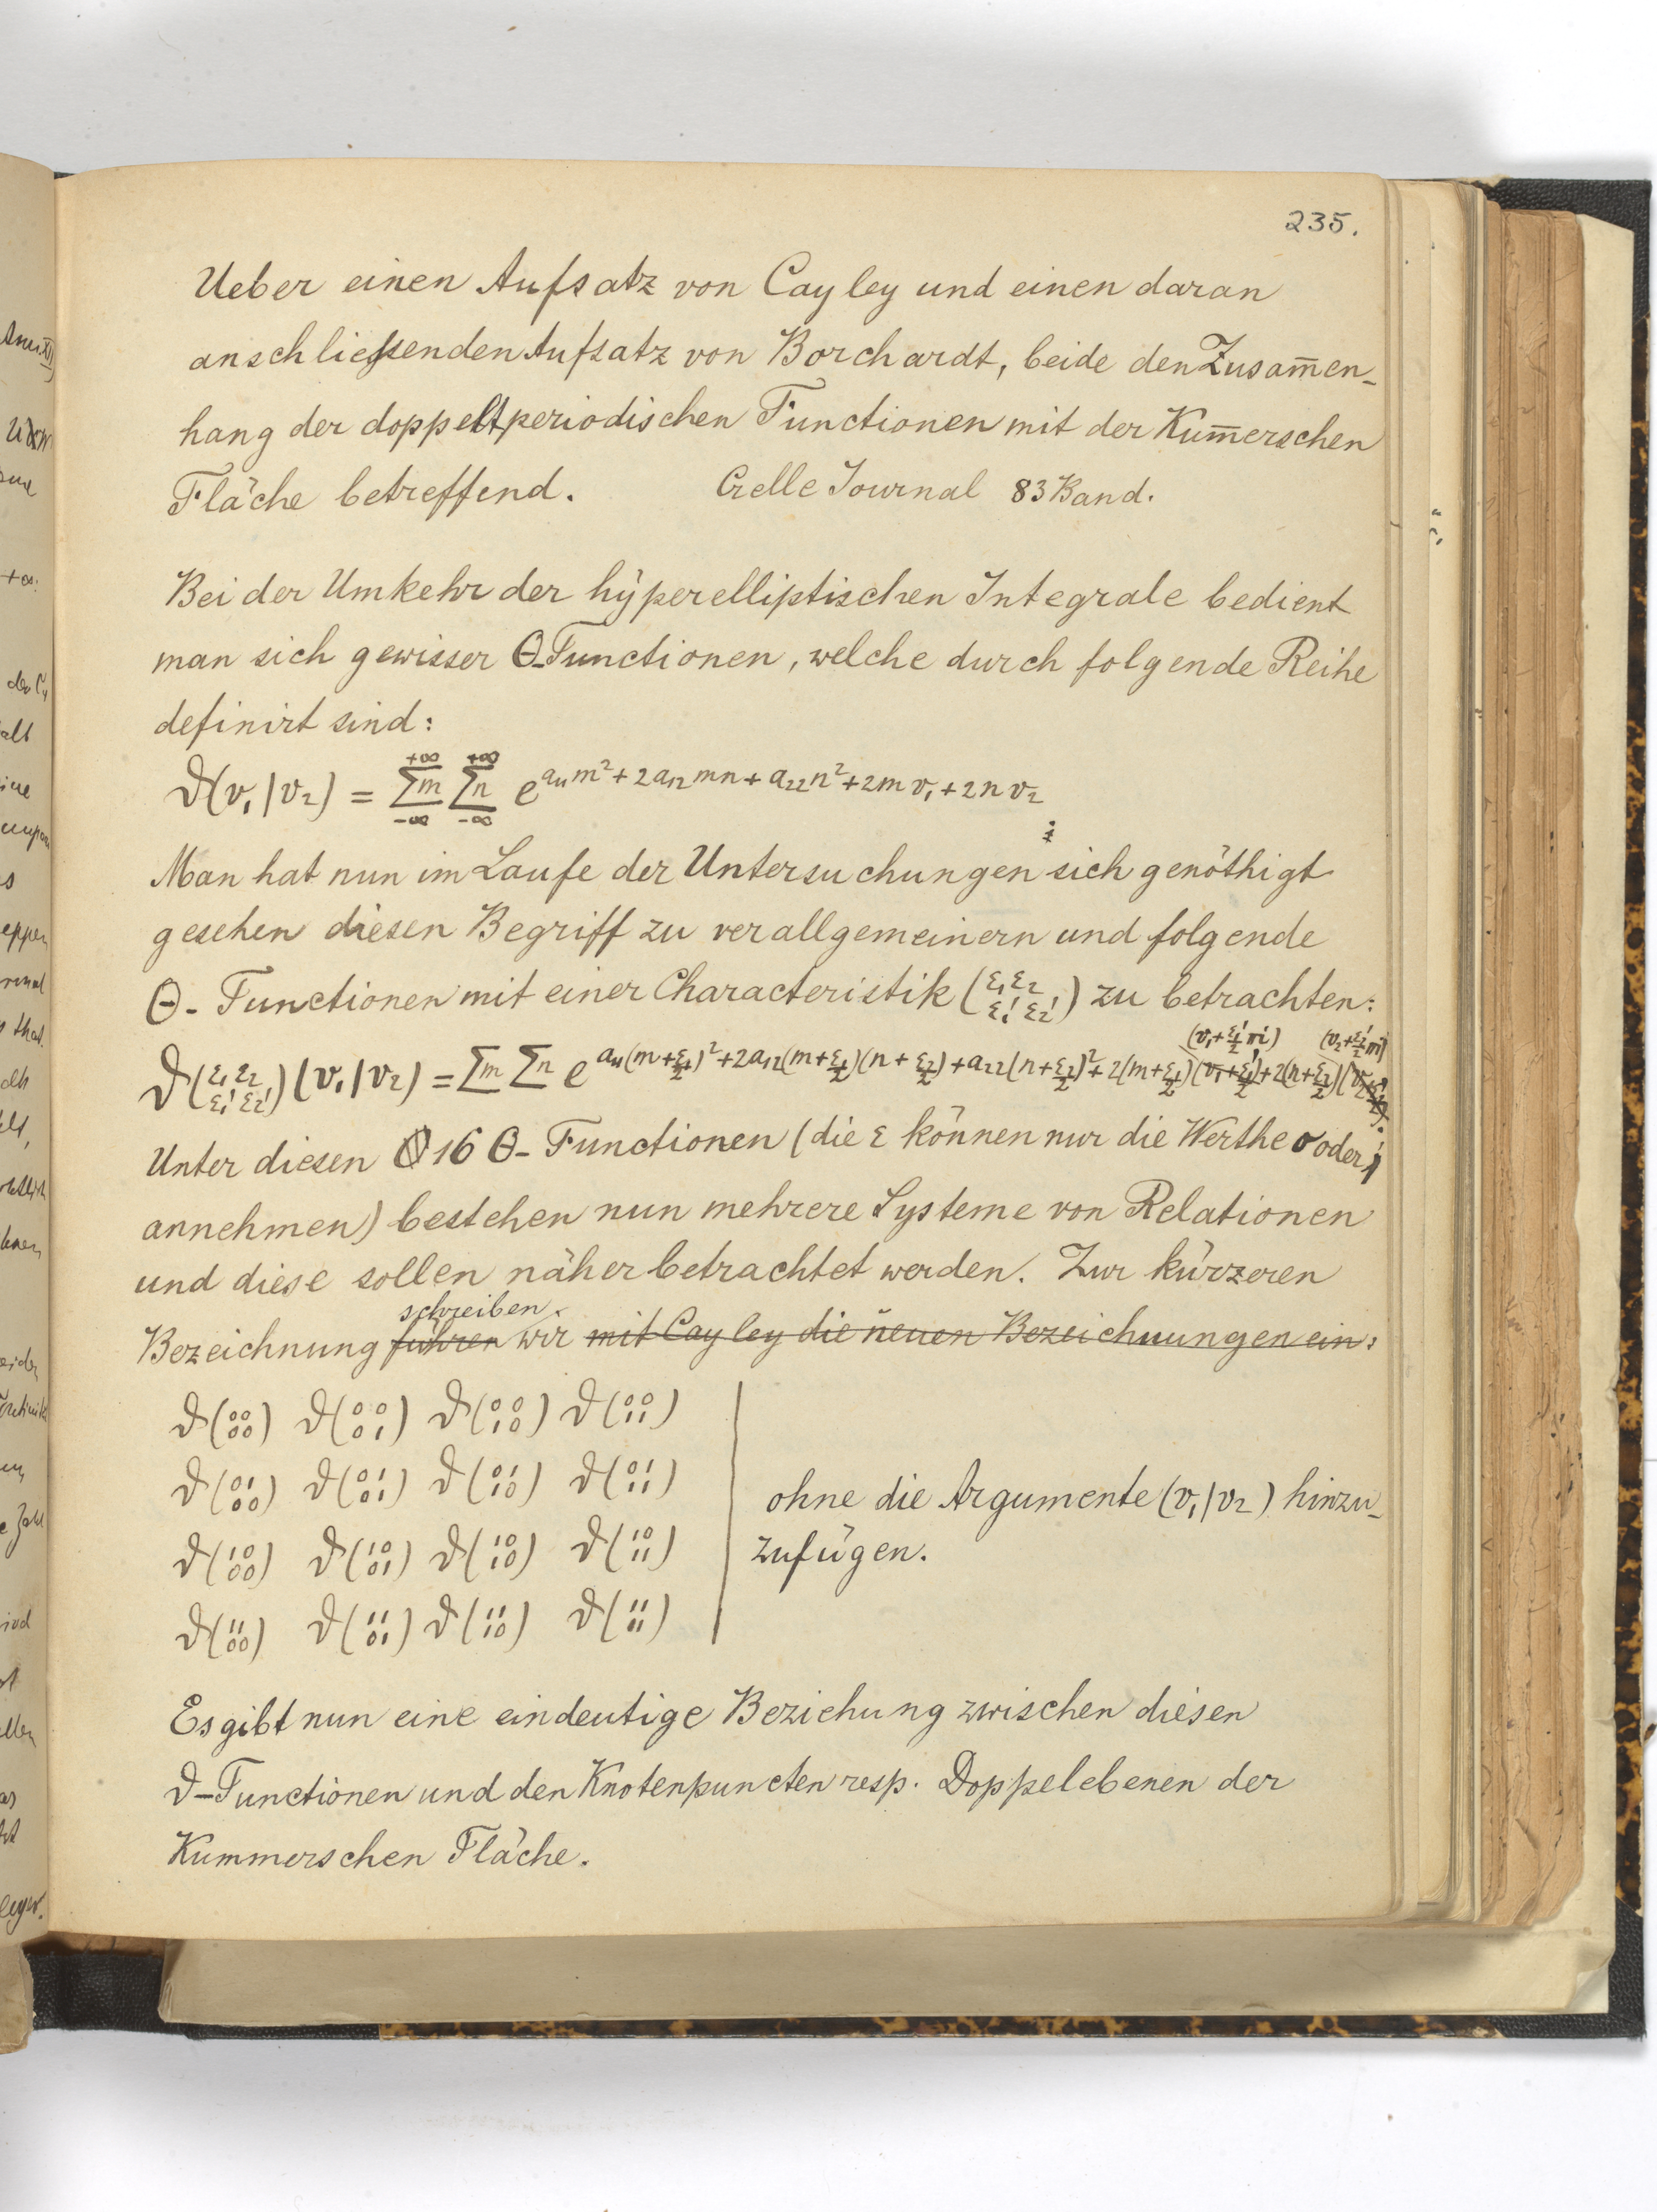 235.
Ueber einen Aufsatz von Cayley und einen daran
anschließenden Aufsatz von Borchardt, beide den Zusam̅en-
hang der doppeltperiodischen Functionen mit der Kum̅erschen
Fläche betreffend. Crelle Journal 83 Band.
Bei der Umkehr der hyperelliptischen Integrale bedient
man sich gewisser Θ-Functionen, welche durch folgende Reihe
definirt sind:
ϑ(v₁|v₂) = Σm_{-∞}^{+∞} Σn_{-∞}^{+∞} e^{a₁₁m²+2a₁₂mn+a₂₂n²+2mv₁+2nv₂};
Man hat nun im Laufe der Untersuchungen sich genöthigt
gesehen diesen Begriff zu verallgemeinern und folgende
Θ-Functionen mit einer Characteristik (ε₁ε₂ / ε₁'ε₂') zu betrachten:
(v₁+ε₁'/2 πi) (v₂+ε₂'/2 πi)
ϑ(ε₁ε₂ / ε₁'ε₂')(v₁|v₂) = Σm Σn e^{a₁₁(m+ε₁/2)²+2a₁₂(m+ε₁/2)(n+ε₂/2)+a₂₂(n+ε₂/2)²+2(m+ε₁/2)(v₁+ε₁'/2)+2(n+ε₂/2)(v₂+ε₂'/2)}.
Unter diesen 16 Θ-Functionen (die ε können nur die Werthe 0 oder 1
annehmen) bestehen nun mehrere Systeme von Relationen
und diese sollen näher betrachtet werden. Zur kürzeren
schreiben
Bezeichnung führen wir mit Cayley die neuen Bezeichnungen ein:
ϑ(00/00) ϑ(00/01) ϑ(00/10) ϑ(00/11)
ϑ(01/00) ϑ(01/01) ϑ(01/10) ϑ(01/11)
ϑ(10/00) ϑ(10/01) ϑ(10/10) ϑ(10/11)
ϑ(11/00) ϑ(11/01) ϑ(11/10) ϑ(11/11)
ohne die Argumente (v₁|v₂) hinzu-
zufügen.
Es gibt nun eine eindeutige Beziehung zwischen diesen
ϑ-Functionen und den Knotenpuncten resp. Doppelebenen der
Kummerschen Fläche.